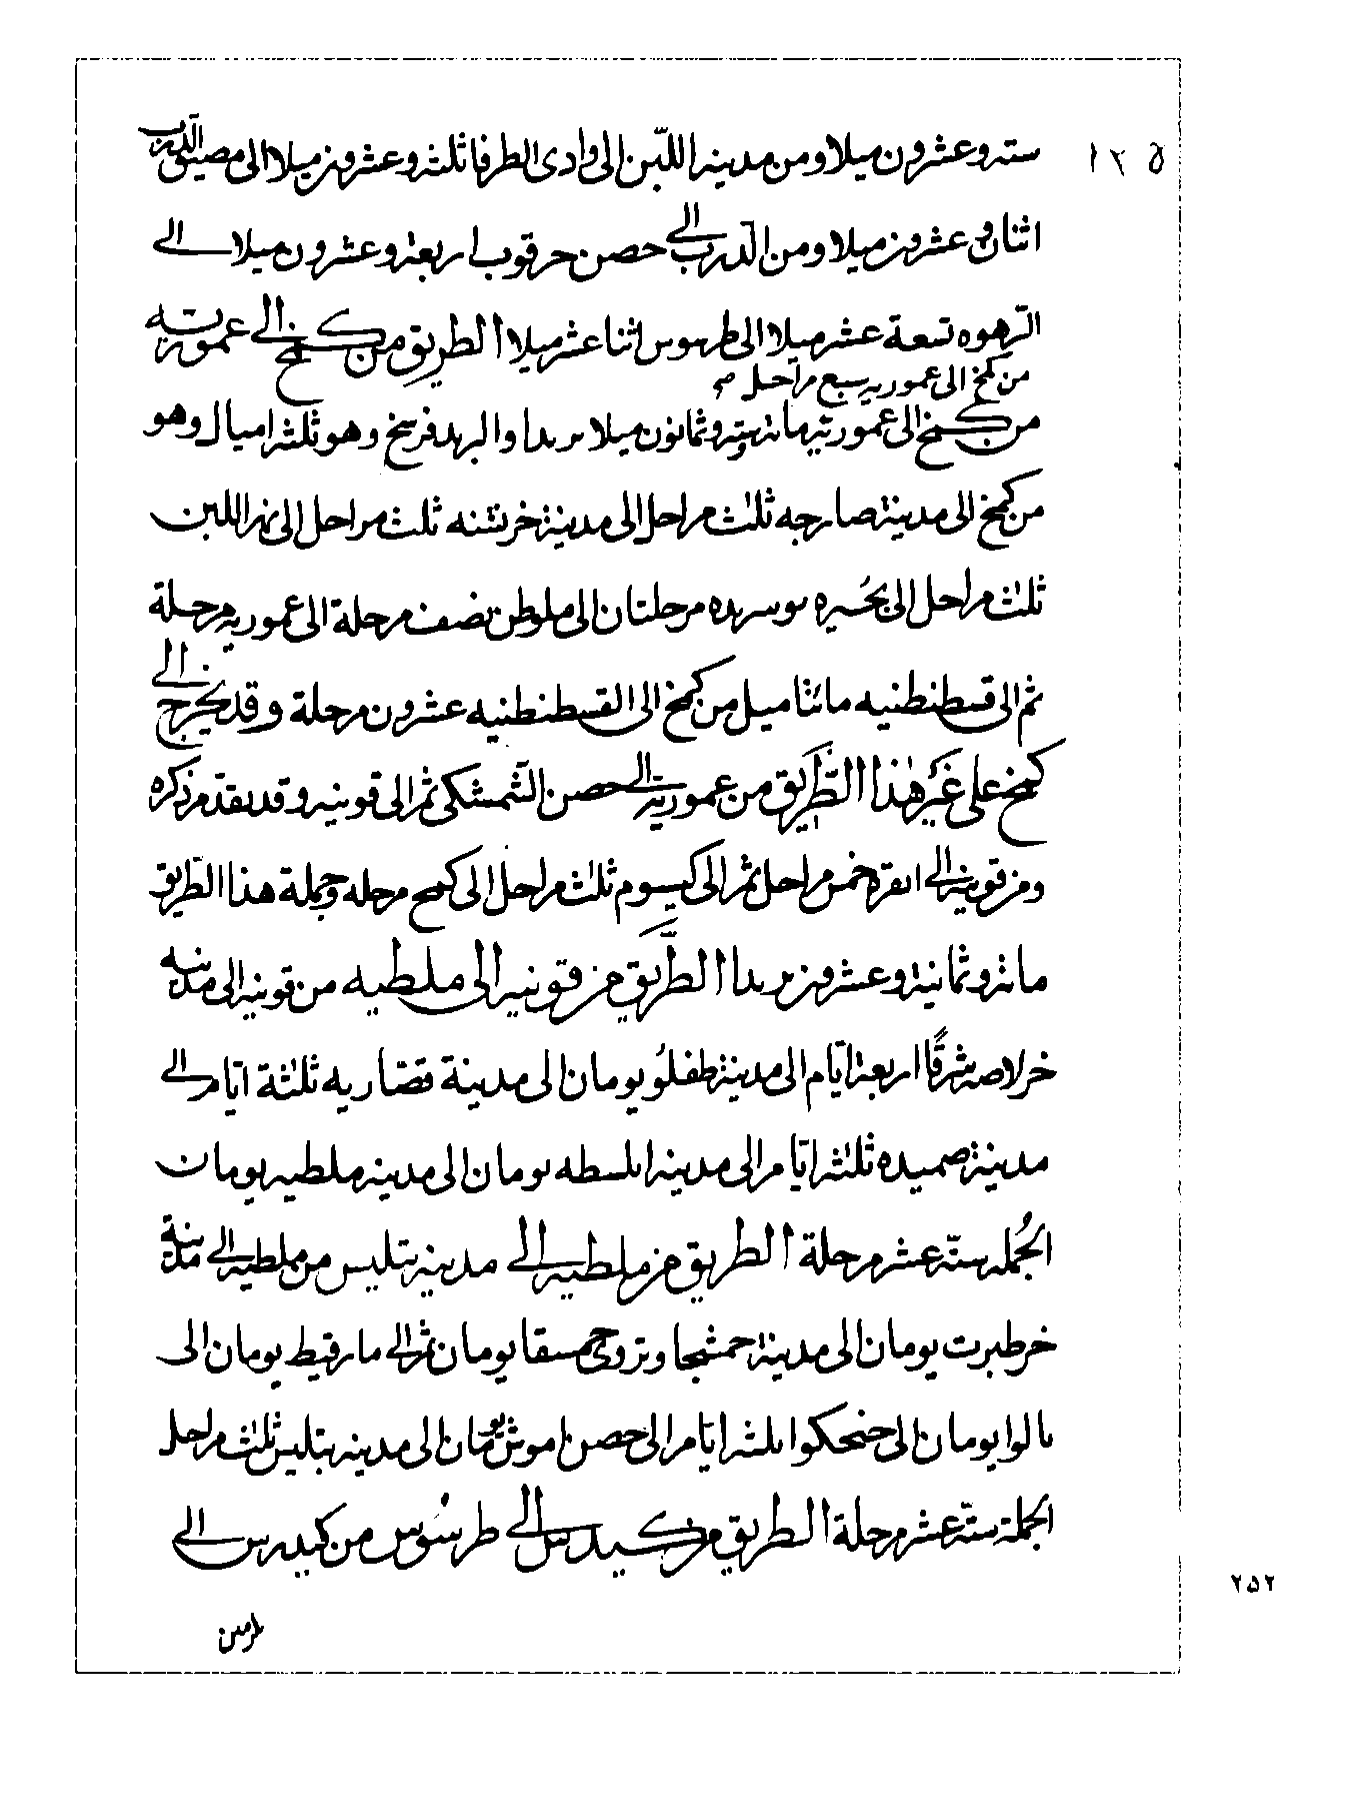 ستة وعشرون ميلا ومن مدينة اللبّن الى وادى الطرفا ثلثة وعشرون ميلا الى مضيق الدرب
١٢٥
اثنان وعشرون ميلا ومن الدّرب الى حصن حرقوب اربعة وعشرون ميلا الى
الترهوه تسعة عشر ميلا الى طرسوس اثنا عشر ميلا الطريق من كمخ الى عمورية
من كمخ الى عمورية سبع مراحل صح
من كمخ الى عمورية مائة وستة وثمانون ميلا بريدا والبريد فرسخ وهو ثلثة اميال وهو
من كمخ الى مدينة صارجه ثلث مراحل الى مدينة خرشنه ثلث مراحل الى نهر اللبن
ثلث مراحل الى بحيره مرحلتان الى ملوطن نصف مرحلة الى عمورية مرحلة
ثم الى قسطنطنيه مائتا ميل من كمخ الى القسطنطنيه عشرون مرحلة وقد يخرج الى
كمخ على غير هذا الطّريق من عمورية الى حصن الشمشكى ثم الى قونية وقد تقدم ذكره
ومن قونية الى انقره خمس مراحل ثم الى كيسوم ثلث مراحل الى كمخ مرحله وجملة هذا الطريق
مائة وثمانية وعشرون بريدا الطّريق من قونيه الى ملطيه من قونية الى مدينه
خرلاصه شرقًا اربعة ايّام الى مدينة طفلو يومان الى مدينة قصّاريه ثلثة ايّام الى
مدينة صميده ثلثة ايّام الى مدينة ابلسطه يومان الى مدينة ملطيه يومان
الجُمله ستّة عشر مرحلة الطريق من ملطيه الى مدينة بتليس من ملطيه الى مدينة
خرطبرت يومان الى مدينة حمشجا يومان ثم الى مارقيط يومان الى
بالوا يومان الى جنحكوا ثلثة ايّام الى حصن اموش يومان الى مدينة بتليس ثلث مراحل
الجملة ستّة عشر مرحلة الطريق من كيدرس الى طرسُوس من كيدرس الى
٢٥٢